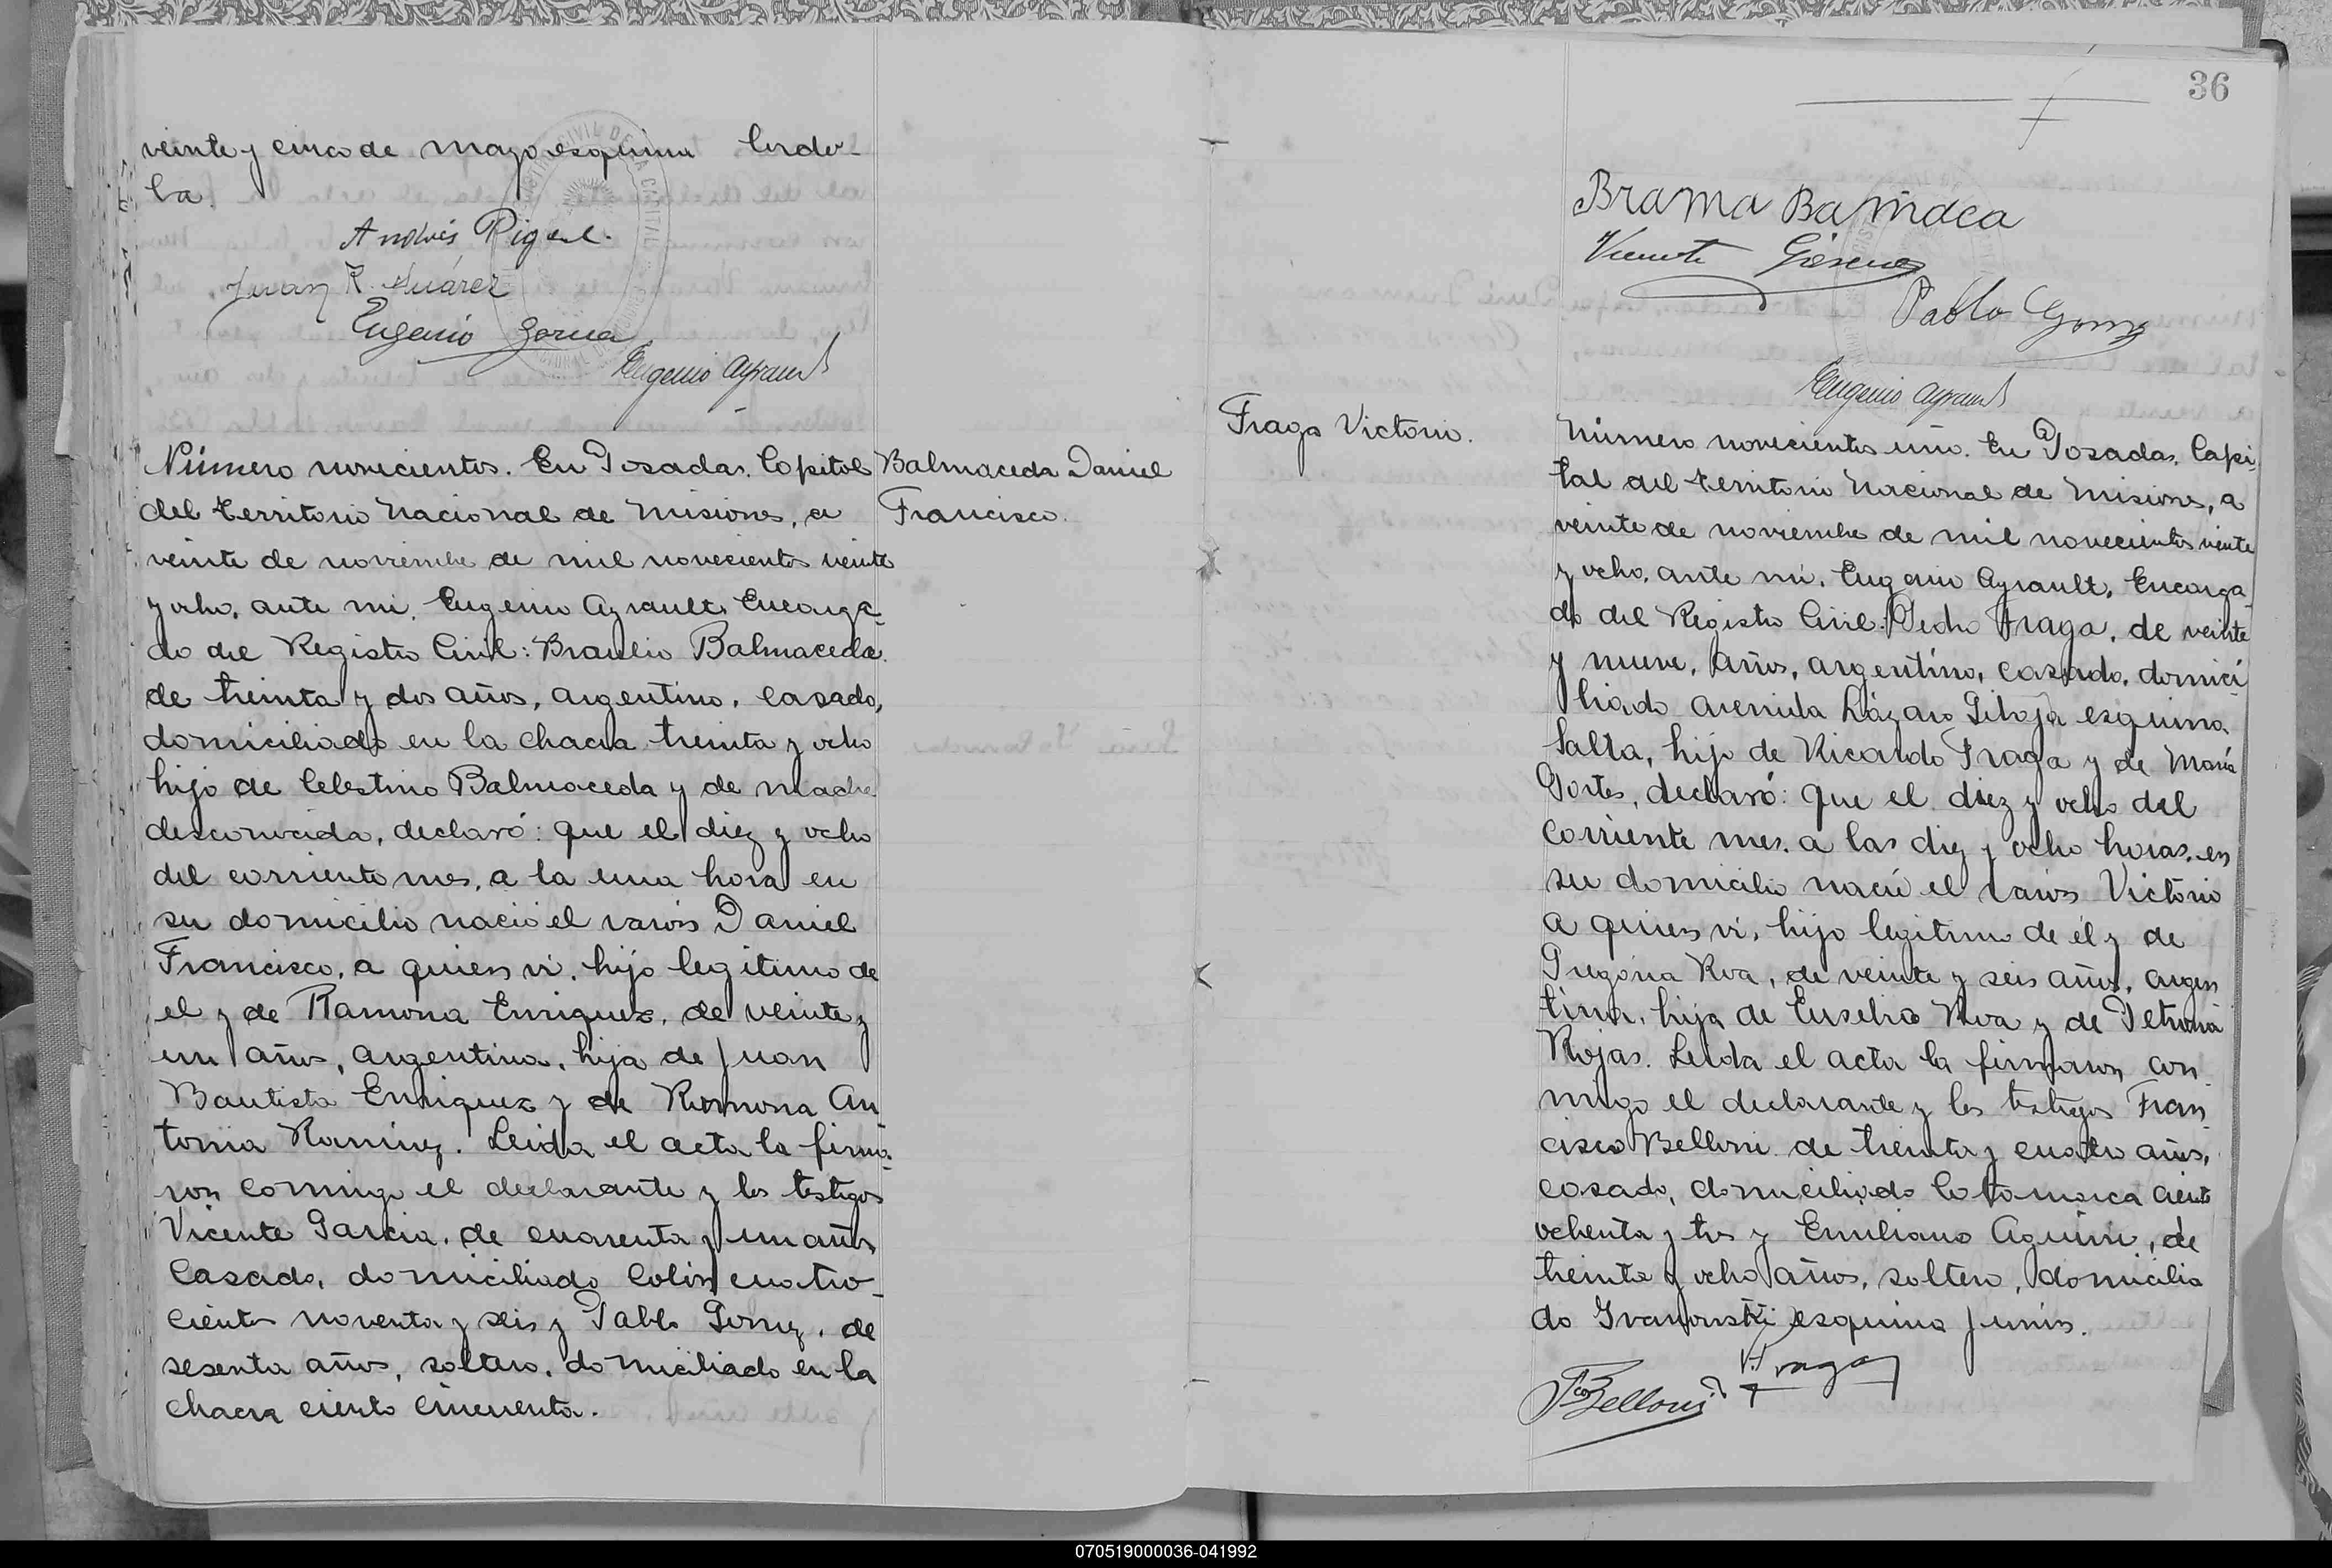 veinte y cinco de mayo esquina Cordo-
ba.
Andrés Rigel.
Juan R. Suárez
Eugenio
Eugenio Ayrault
Número novecientos. En Posadas, Capital
del territorio Nacional de Misiones, a
veinte de noviembre de mil novecientos veinte
y ocho, ante mi, Eugenio Ayrault, Encarga-
do del Registro Civil: Braulio Balmaceda
de treinta y dos años, argentino, casado,
domiciliado en la chacra treinta y ocho
hijo de Celestino Balmaceda y de madre
desconocida, declaró: que el diez y ocho
del corriente mes, a la una hora en
su domicilio nació el varón Daniel
Francisco, a quien vi, hijo legitimo de
el y de Ramona Enriquez, de veinte y
un años, argentina, hija de Juan
Bautista Enriquez y de Ramona An
tonia Ramirez. Leida el acta la firma-
ron conmigo el declarante y los testigos
Vicente Garcia, de cuarenta y un años
casado, domiciliado Colón cuatro-
cientos noventa y seis y Pablo Gomez, de
sesenta años, soltero, domiciliado en la
chacra ciento cincuenta.
Balmaceda Daniel
Francisco.
36
Brama
Vicente
Pablo Gomez
Eugenio Ayrault
Fraga Victorio.
Número novecientos uno. En Posadas, Capi-
tal del territorio Nacional de Misiones, a
veinte de noviembre de mil novecientos veinte
y ocho, ante mi, Eugenio Ayrault, Encarga-
do del Registro Civil: Pedro Fraga, de veinte
y nueve, años, argentino, casado, domici
liado avenida Lázaro esquina
Salta, hijo de Ricardo Fraga y de María
Portes, declaró: que el diez y ocho del
corriente mes, a las diez y ocho horas, en
su domicilio nació el varón Victorio
a quien vi, hijo legitimo de él y de
Gregoria Roa, de veinte y seis años, argen
tina, hija de Eusebio Roa y de Petrona
Rojas. Leida el acta la firmaron con
migo el declarante y los testigos Fran
cisco Belloni de treinta y cuatro años,
casado, domiciliado Catamarca ciento
ochenta y tres y Emiliano Aguirre, de
treinta y ocho años, soltero, domicilia
do Ivanowski esquina Junin.
P. Fraga
Fco Belloni
070519000036-041992